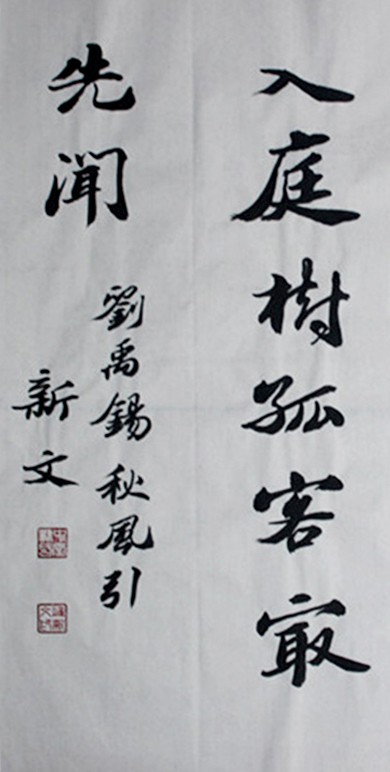 入庭樹孤客㝡
先聞
劉禹錫秋風引
新文